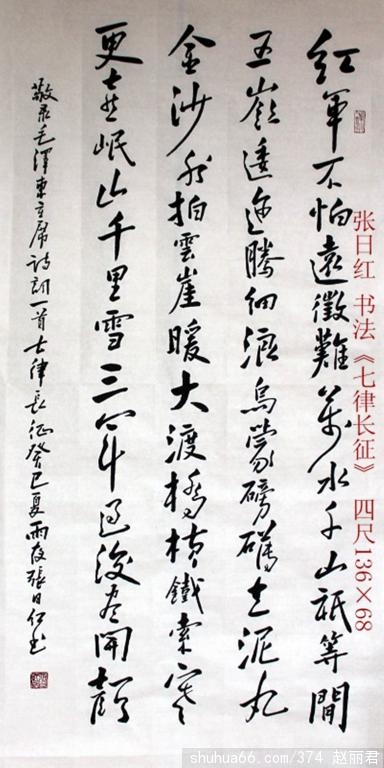 紅軍不怕遠徵難萬水千山祇等閒
五嶺逶迤騰細浪烏蒙磅礴走泥丸
金沙水拍雲崖暖大渡橋横鐵索寒
更喜岷山千里雪三軍過後盡開顏
敬录毛澤東主席詩詞一首七律長征癸巳夏雨夜張日红书
张日红 书法 《七律长征》 四尺136×68
shuhua66.com/374 赵丽君